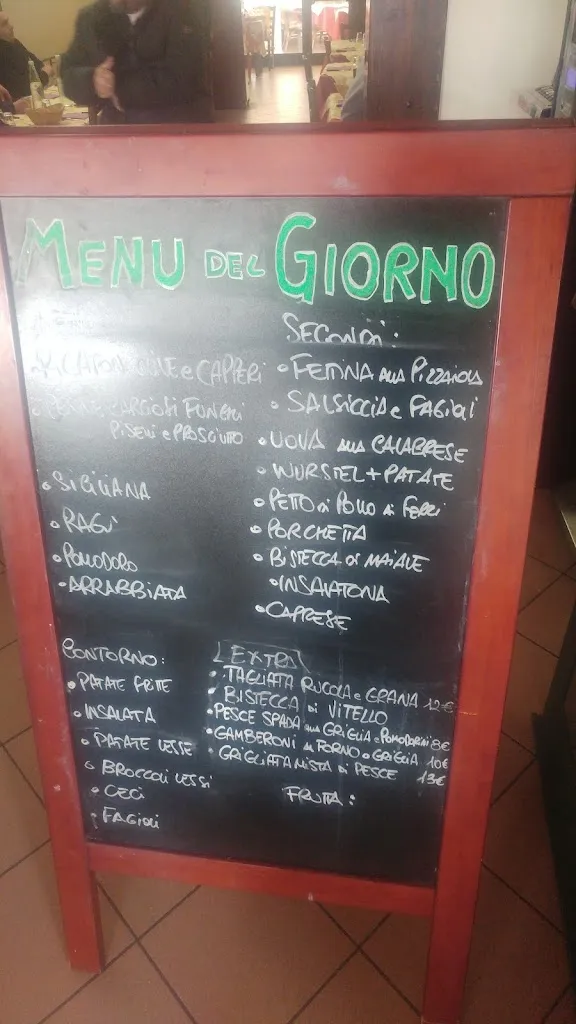 MENU DEL GIORNO
CAPPERI
FUNGHI
PISELLI e PROSCIUTTO
• SICILIANA
• RAGÙ
• POMODORO
• ARRABBIATA
SECONDI:
• FETTINA ALLA PIZZAIOLA
• SALSICCIA e FAGIOLI
• UOVA ALLA CALABRESE
• WURSTEL + PATATE
• PETTO di POLLO ai FERRI
• PORCHETTA
• BISTECCA DI MAIALE
• INSALATONA
• CAPRESE
CONTORNO:
• PATATE FRITTE
• INSALATA
• PATATE LESSE
• BROCCOLI LESSI
• CECI
• FAGIOLI
EXTRA
• TAGLIATA RUCOLA e GRANA 12€
• BISTECCA DI VITELLO
• PESCE SPADA alla GRIGLIA e POMODORINI 8€
• GAMBERONI al FORNO o GRIGLIA 10€
• GRIGLIATA MISTA di PESCE 13€
FRUTTA: